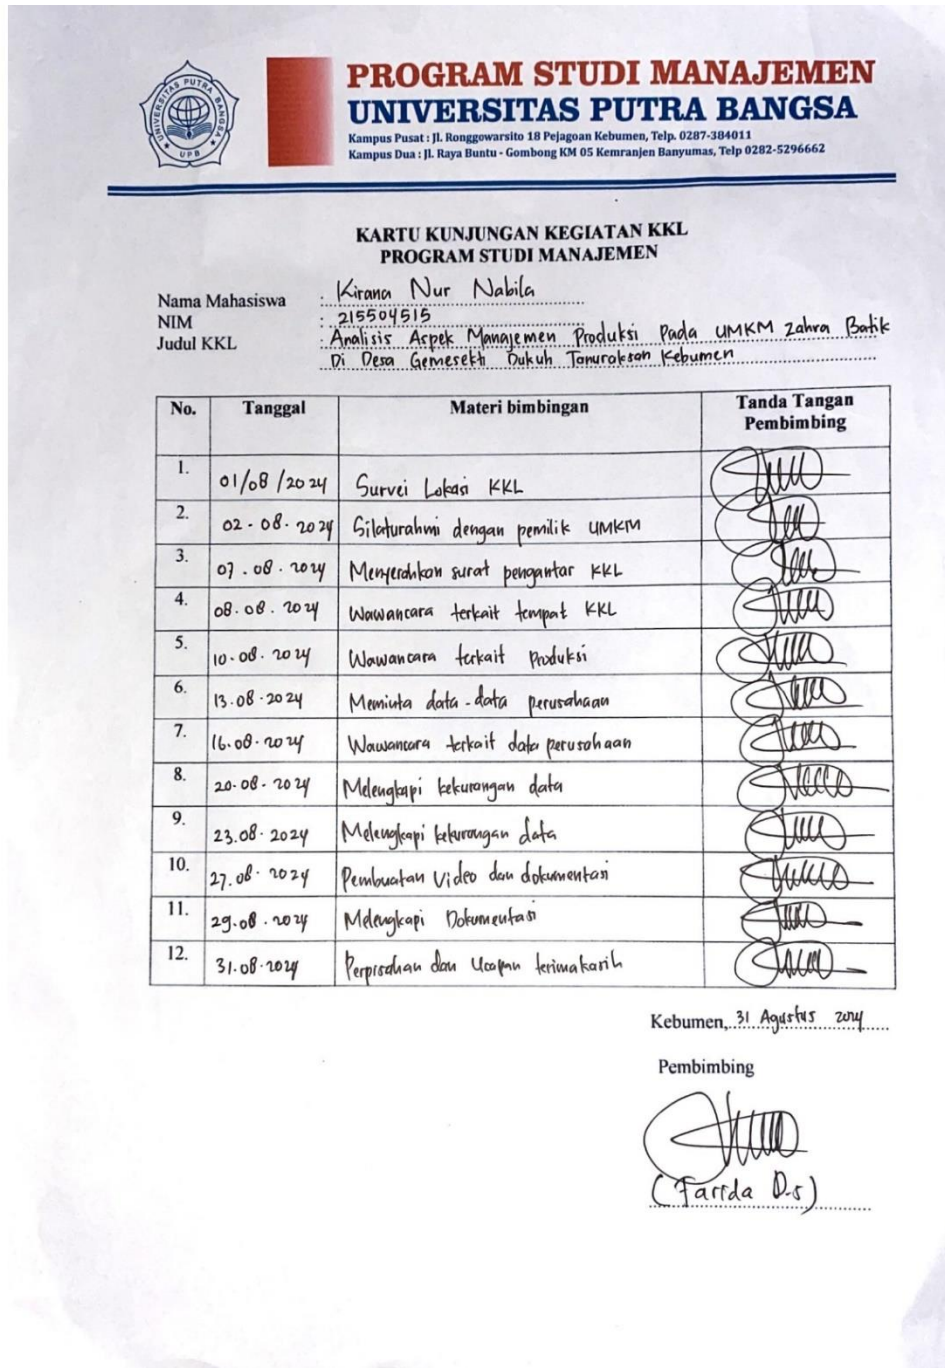 UNIVERSITAS PUTRA BANGSA
UPB
PROGRAM STUDI MANAJEMEN
UNIVERSITAS PUTRA BANGSA
Kampus Pusat : Jl. Ronggowarsito 18 Pejagoan Kebumen, Telp. 0287-384011
Kampus Dua : Jl. Raya Buntu - Gombong KM 05 Kemranjen Banyumas, Telp 0282-5296662
KARTU KUNJUNGAN KEGIATAN KKL
PROGRAM STUDI MANAJEMEN
Nama Mahasiswa : Kirana Nur Nabila
NIM : 215504515
Judul KKL : Analisis Aspek Manajemen Produksi Pada UMKM Zahra Batik
Di Desa Gemesekti Dukuh Tanuraksan Kebumen
No. Tanggal Materi bimbingan Tanda Tangan Pembimbing
1. 01/08/2024 Survei Lokasi KKL
2. 02-08-2024 Silaturahmi dengan pemilik UMKM
3. 07.08.2024 Menyerahkan surat pengantar KKL
4. 08.08.2024 Wawancara terkait tempat KKL
5. 10.08.2024 Wawancara terkait Produksi
6. 13.08.2024 Meminta data-data perusahaan
7. 16.08.2024 Wawancara terkait data perusahaan
8. 20-08-2024 Melengkapi kekurangan data
9. 23.08.2024 Melengkapi kekurangan data
10. 27.08.2024 Pembuatan Video dan dokumentasi
11. 29.08.2024 Melengkapi Dokumentasi
12. 31.08.2024 Perpisahan dan Ucapan terimakasih
Kebumen, 31 Agustus 2024
Pembimbing
(Farida D.s)